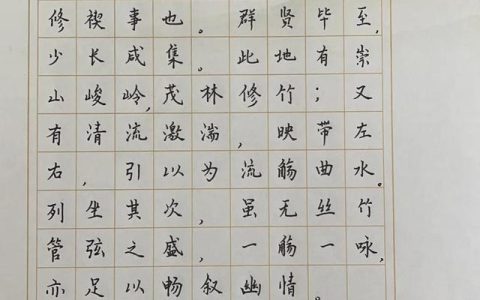 修禊事也。群贤毕至,
少长咸集。此地有崇
山峻岭,茂林修竹;又
有清流激湍,映带左
右,引以为流觞曲水。
列坐其次,虽无丝竹
管弦之盛,一觞一咏,
亦足以畅叙幽情。